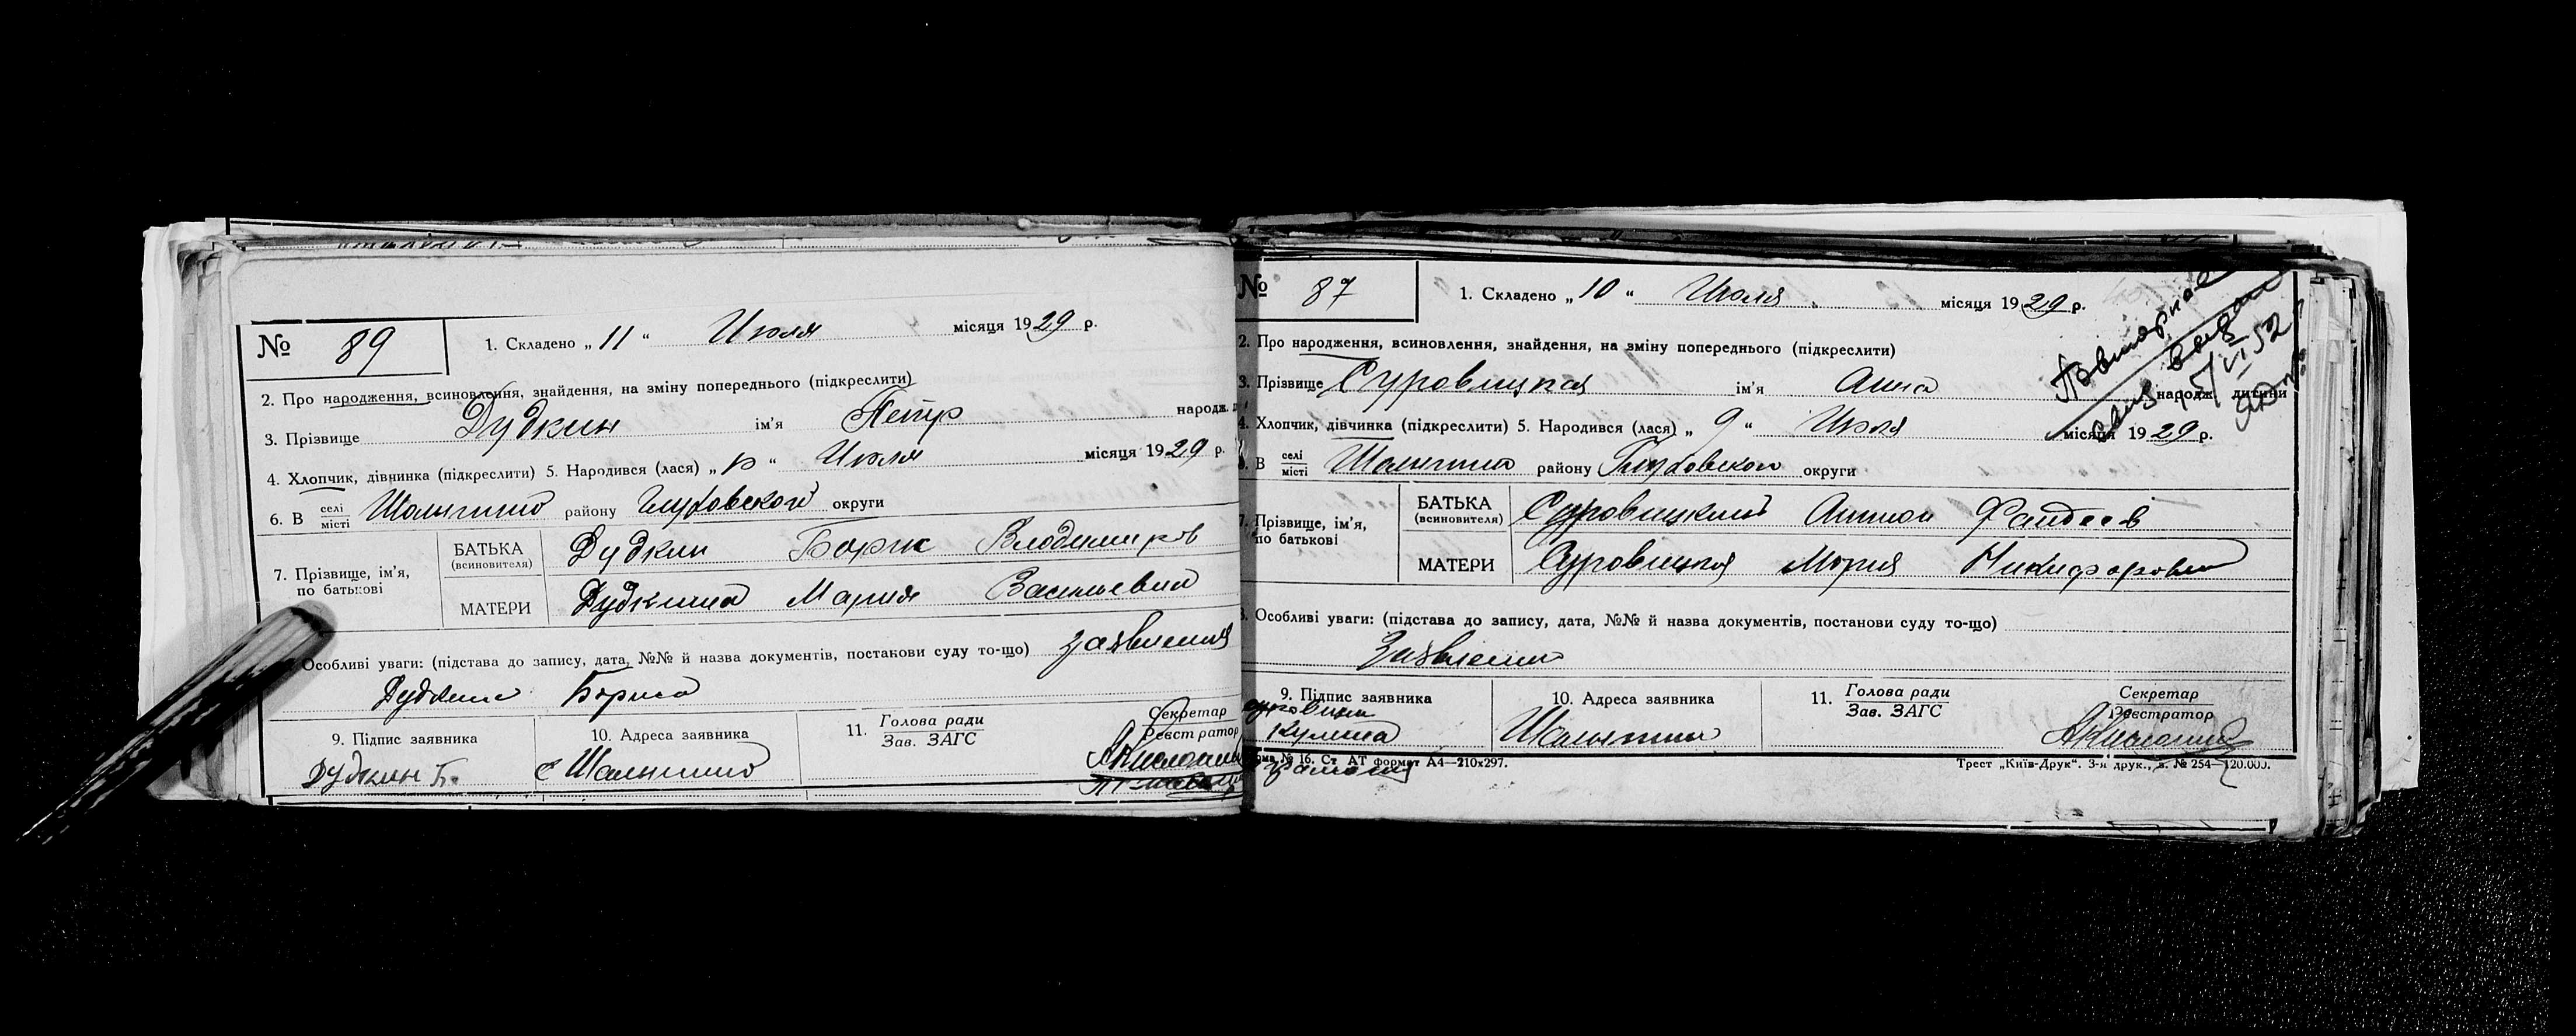 № 89
1. Складено „ 11 “ Июля місяця 1929 р.
2. Про народження, всиновлення, знайдення, на зміну попереднього (підкреслити)
3. Прізвище Дудкин ім'я Петр народж.
4. Хлопчик, дівчинка (підкреслити) 5. Народився (лася) „ “ Июля місяця 1929 р.
6. В селі місті Шалыгино району Глуховской округи
7. Прізвище, ім'я, по батькові
БАТЬКА (всиновителя) Дудкин Борис Владимиров
МАТЕРИ Дудкина Мария Васильевна
Особливі уваги: (підстава до запису, дата, №№ й назва документів, постанови суду то-що) заявления
Дудкина Бориса
9. Підпис заявника 10. Адреса заявника 11. Голова ради Зав. ЗАГС Секретар Реєстратор
Дудкин Б. с Шалыгино
№ 87
1. Складено „ 10 “ Июля місяця 1929 р.
2. Про народження, всиновлення, знайдення, на зміну попереднього (підкреслити)
3. Прізвище Суровицкая ім'я Анна народж. дитини
4. Хлопчик, дівчинка (підкреслити) 5. Народився (лася) „ 9 “ Июля місяця 1929 р.
6. В селі місті Шалыгино району Глуховской округи
7. Прізвище, ім'я, по батькові
БАТЬКА (всиновителя) Суровицкий Антон Фандеев
МАТЕРИ Суровицкая Мария Никифоровна
8. Особливі уваги: (підстава до запису, дата, №№ й назва документів, постанови суду то-що)
Заявление
9. Підпис заявника 10. Адреса заявника 11. Голова ради Зав. ЗАГС Секретар Реєстратор
Шалыгино
№ 16. Ст. АТ формат А4—210х297.
Трест „Київ-Друк“. 3-я друк., з. № 254—120.000.
Повторное